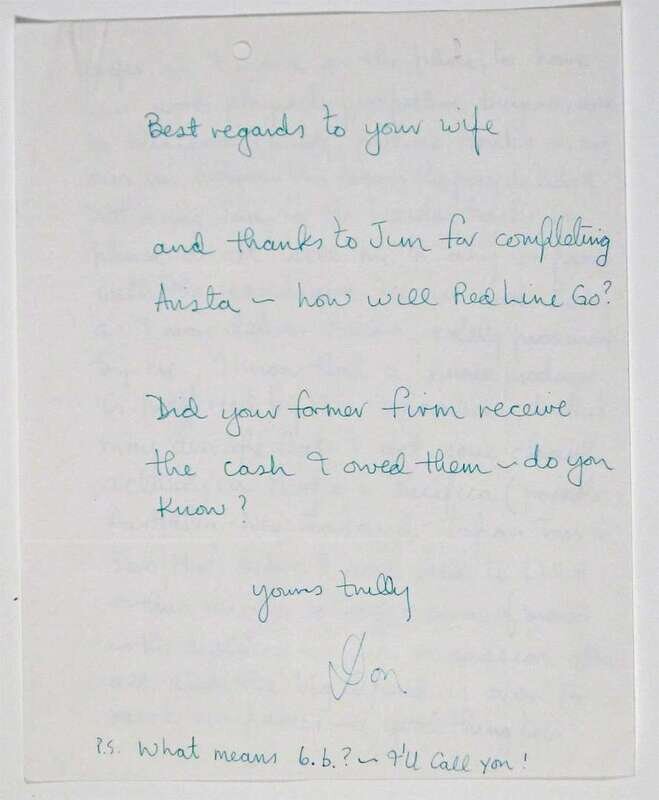 Best regards to your wife
and thanks to Jim for completing
Ansta – how will Red Line Go?
Did your former firm receive
the cash I owed them – do you
know?
yours trully
Don
P.S. What means b.b.? – I'll call you!